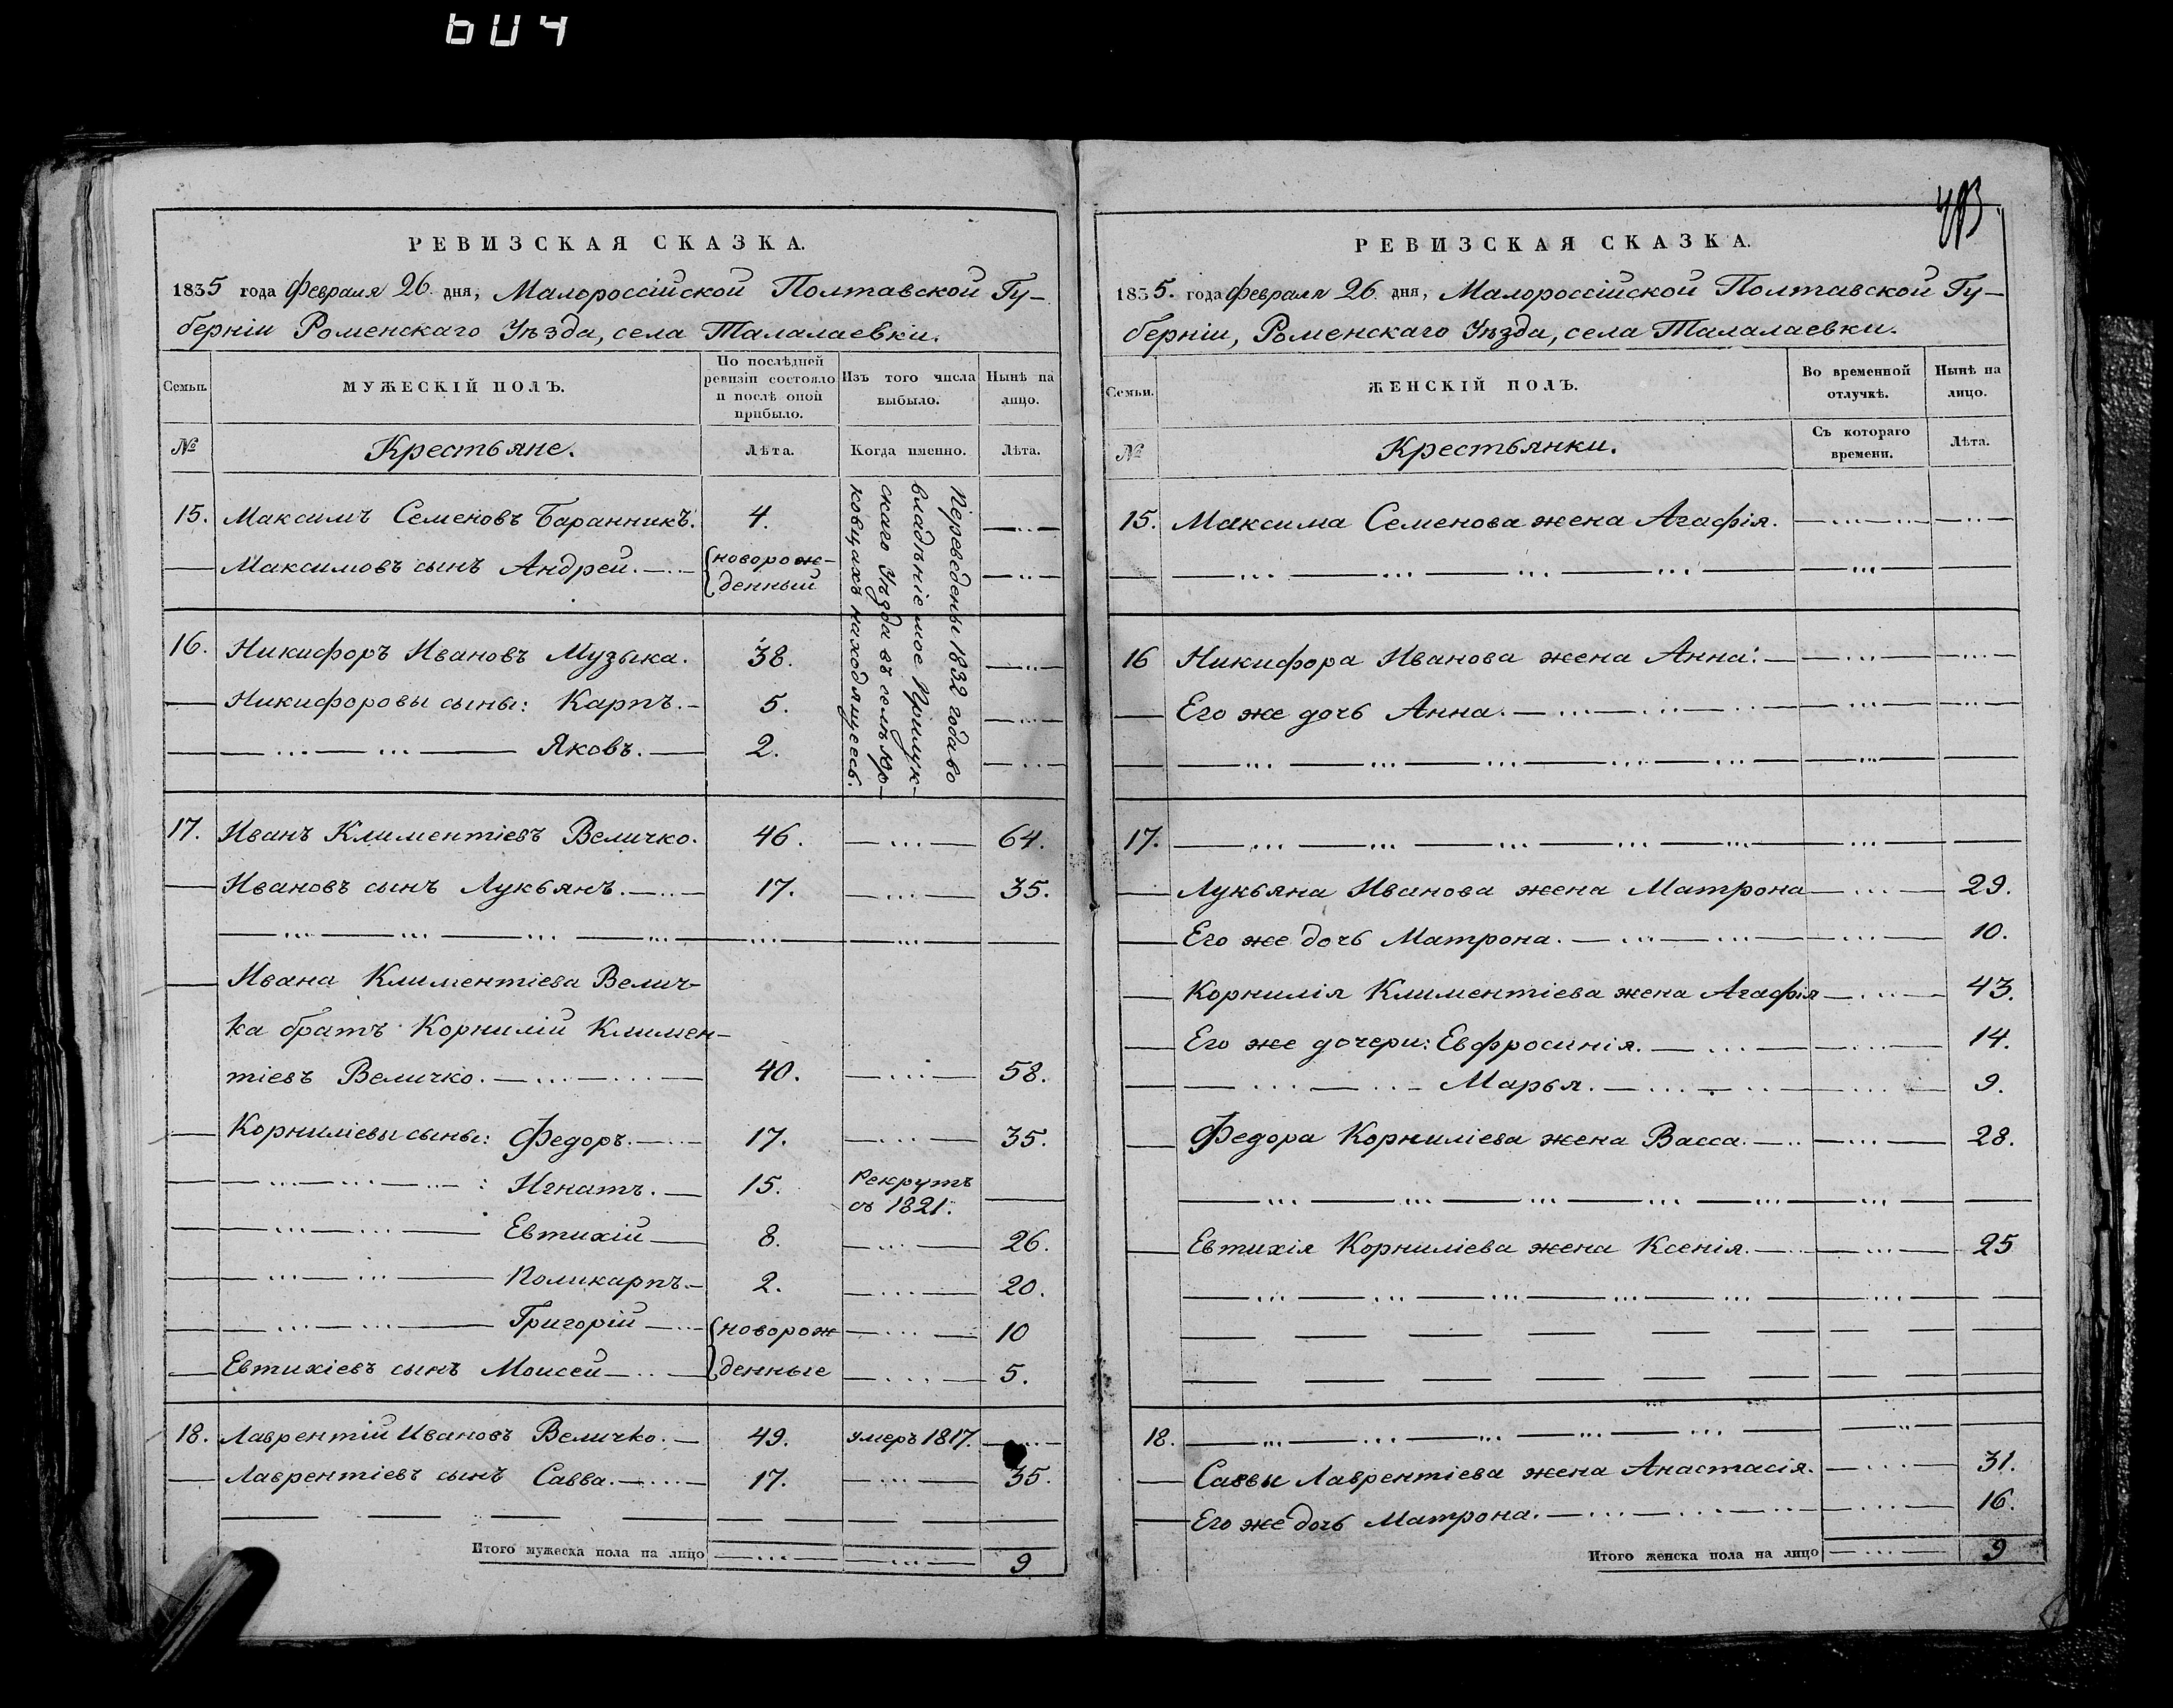 604
РЕВИЗСКАЯ СКАЗКА.
1835 года Февраля 26 дня, Малороссійской Полтавской Гу-
берніи Роменскаго Уѣзда, села Талалаевки.
Семьи.
МУЖЕСКІЙ ПОЛЪ.
По послѣдней
ревизіи состояло
и послѣ оной
прибыло.
Изъ того числа
выбыло.
Нынѣ на
лицо.
№
Крестьяне.
Лѣта.
Когда именно.
Лѣта.
15. Максимъ Семеновъ Баранникъ. 4.
Максимовъ сынъ Андрей. новорож-
денный
16. Никифоръ Ивановъ Музыка. 38.
Никифоровы сыны: Карпъ. 5.
Яковъ. 2.
Переведены 1832 года во
владѣніе мое Прилук-
скаго Уѣзда въ селѣ Юр-
ковцахъ находящееся.
17. Иванъ Климентіевъ Величко. 46. 64.
Ивановъ сынъ Лукьянъ. 17. 35.
Ивана Климентіева Велич-
ка братъ Корнилій Климен-
тіевъ Величко. 40. 58.
Корниліевы сыны: Федоръ. 17. 35.
: Игнатъ. 15. Рекрутъ
съ 1821.
Евтихій 8. 26.
Поликарпъ. 2. 20.
Григорій новорож 10
Евтихіевъ сынъ Моисей денные 5.
18. Лаврентій Ивановъ Величко. 49. умеръ 1817.
Лаврентіевъ сынъ Савва. 17. 35.
Итого мужеска пола на лицо 9
РЕВИЗСКАЯ СКАЗКА.
1835. года Февраля 26 дня, Малороссійской Полтавской Гу-
берніи, Роменскаго Уѣзда, села Талалаевки.
Семьи.
ЖЕНСКІЙ ПОЛЪ.
Во временной
отлучкѣ.
Нынѣ на
лицо.
№
Крестьянки.
Съ котораго
времени.
Лѣта.
15. Максима Семенова жена Агафія.
16 Никифора Иванова жена Анна.
Его же дочь Анна.
17.
Лукьяна Иванова жена Матрона 29.
Его же дочь Матрона. 10.
Корнилія Климентіева жена Агафія 43.
Его же дочери: Евфросинія. 14.
Марья. 9.
Федора Корниліева жена Васса. 28.
Евтихія Корниліева жена Ксенія. 25
18.
Саввы Лаврентіева жена Анастасія. 31.
Его же дочь Матрона. 16.
Итого женска пола на лицо 9